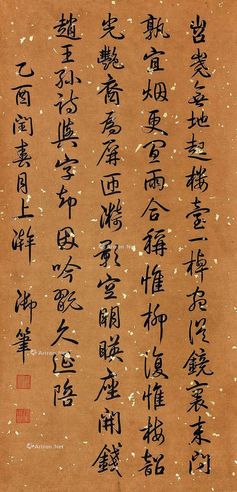 岧嶤無地起樓臺一棹宛從鏡裏來問
孰宜烟更宜雨合稱惟柳復惟梅韶
光艷裔為屏匝漪影空明暎座開錢
趙王孫詩與字却因吟翫久延陪
乙酉閏春月上澣 御筆
Artron.Net